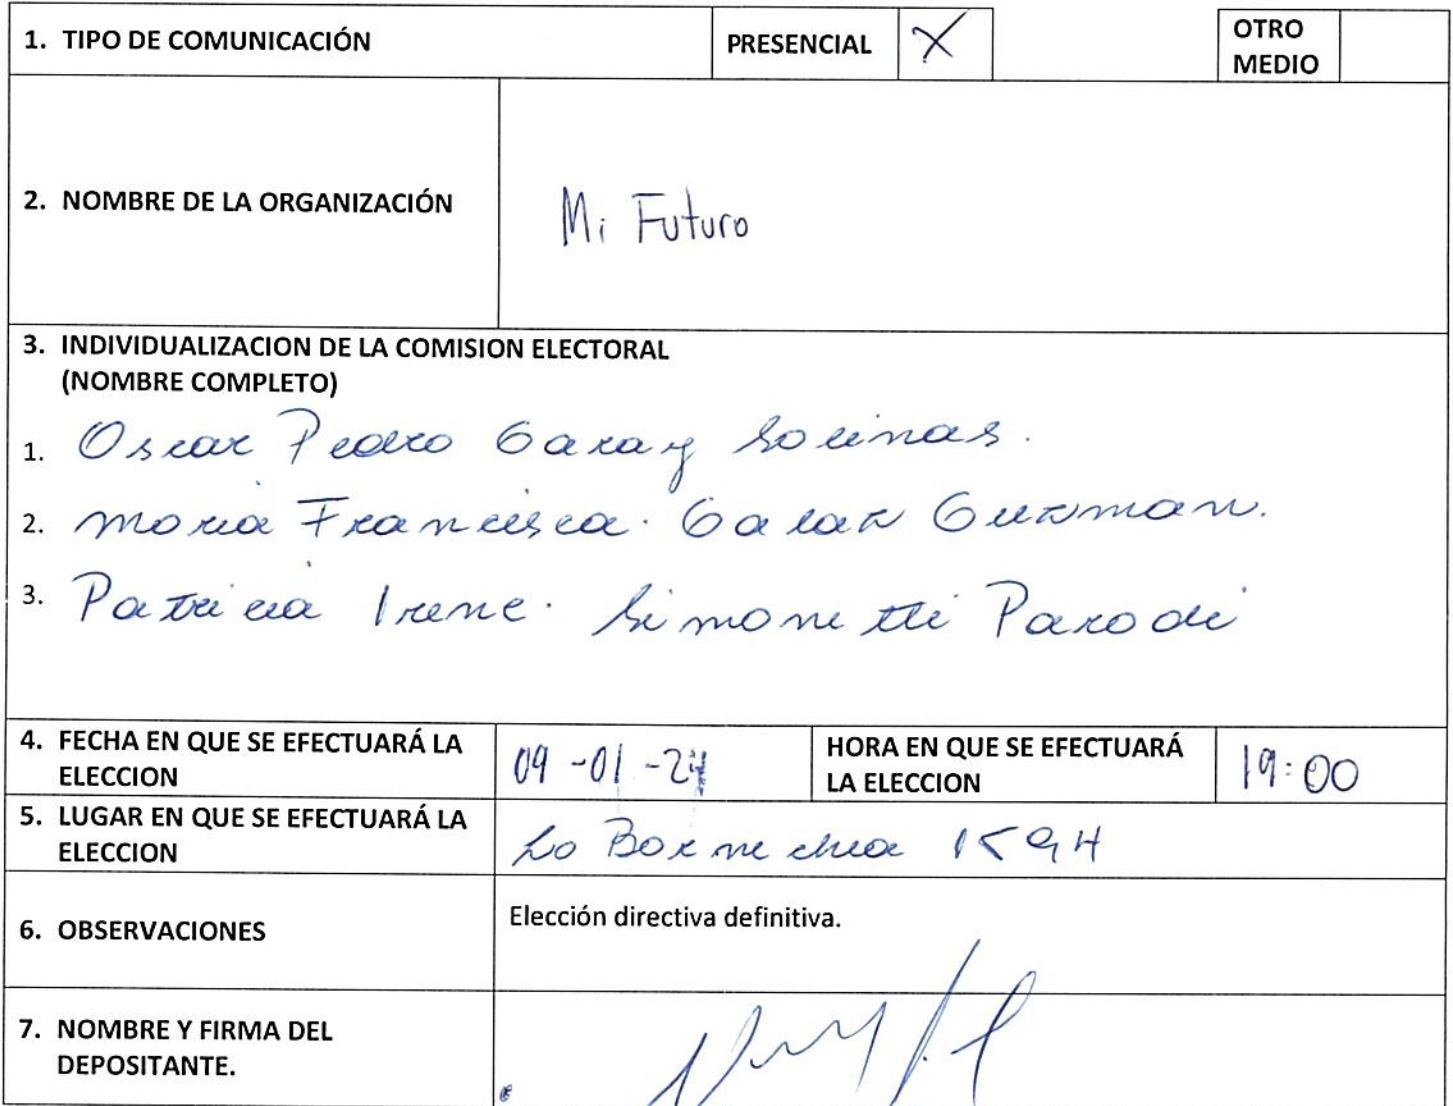 1. TIPO DE COMUNICACIÓN PRESENCIAL X OTRO MEDIO
2. NOMBRE DE LA ORGANIZACIÓN Mi Futuro
3. INDIVIDUALIZACION DE LA COMISION ELECTORAL
(NOMBRE COMPLETO)
1. Oscar Pedro Garay Solinas.
2. Maria Francisca. Galaz Guzman.
3. Patricia Irene. Simonetti Parodi
4. FECHA EN QUE SE EFECTUARÁ LA ELECCION 09-01-24 HORA EN QUE SE EFECTUARÁ LA ELECCION 19:00
5. LUGAR EN QUE SE EFECTUARÁ LA ELECCION Lo Barnechea
6. OBSERVACIONES Elección directiva definitiva.
7. NOMBRE Y FIRMA DEL
DEPOSITANTE.